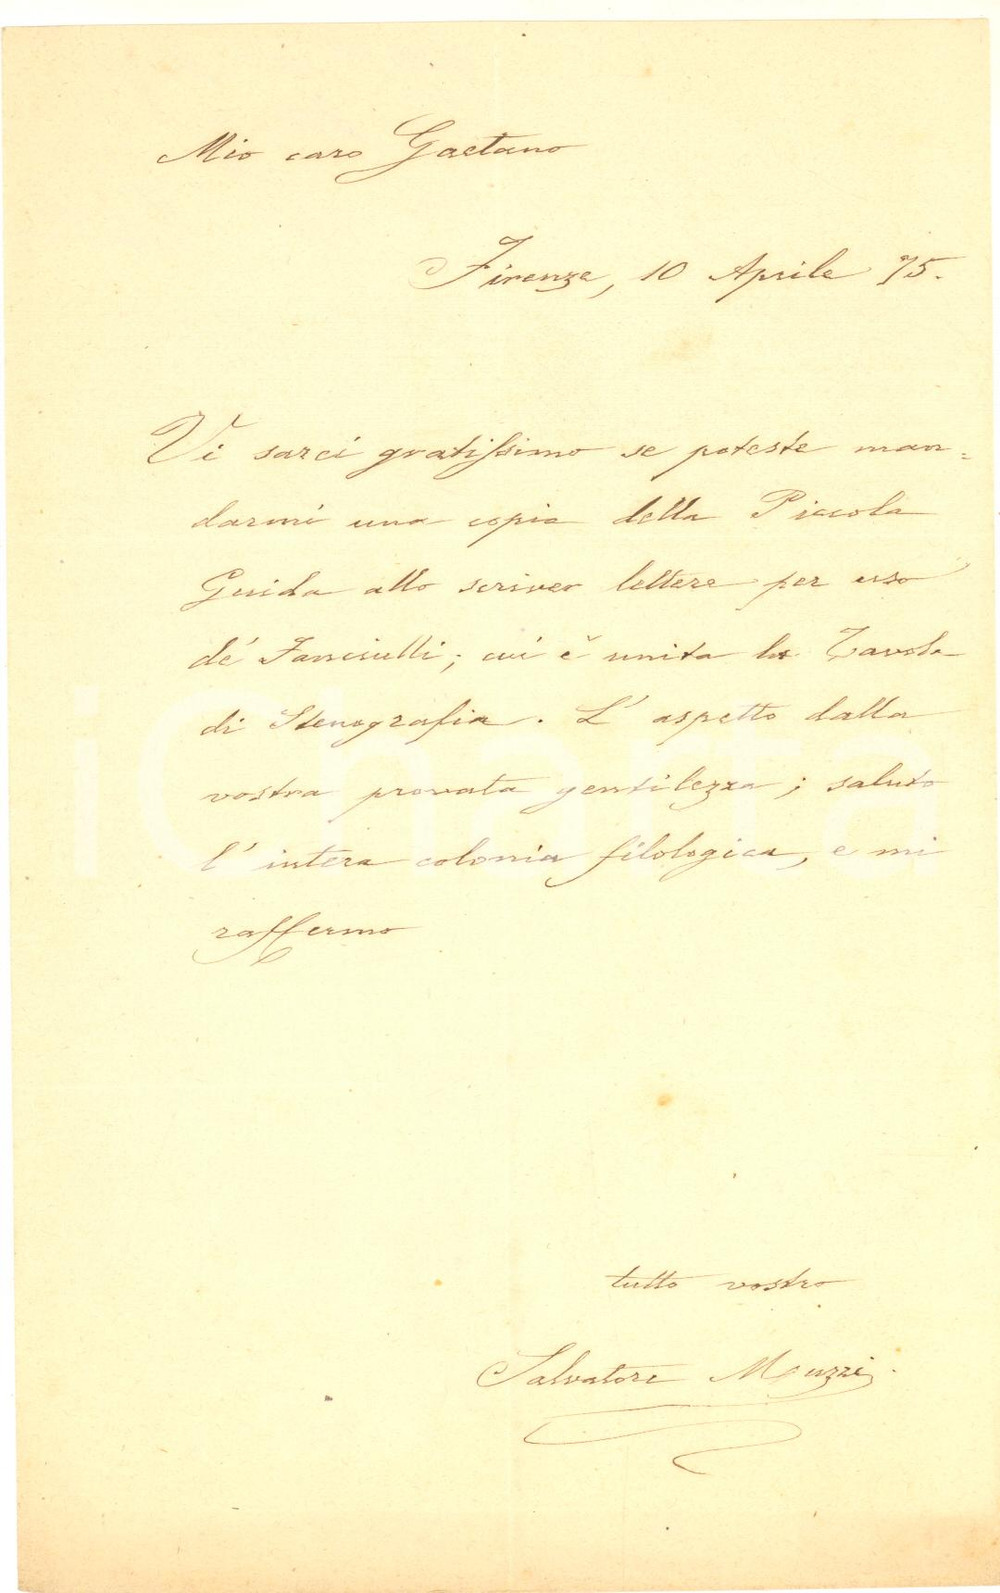 Mio caro Gaetano
Firenze, 10 Aprile 75.
Vi sarei gratissimo se poteste man=
darmi una copia della Piccola
Guida allo scriver lettere per uso
de' Fanciulli; cui è unita la Tavola
di Stenografia. L' aspetto dalla
vostra provata gentilezza; saluto
l' intera colonia filologica, e mi
raffermo
tutto vostro
Salvatore Muzzi.
iCharta